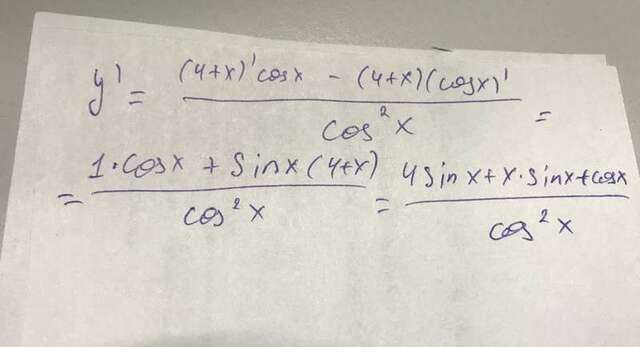 y' = ((4+x)'cosx - (4+x)(cosx)')/(cos²x) =
= (1·cosx + sinx(4+x))/(cos²x) = (4sinx+x·sinx+cosx)/(cos²x)